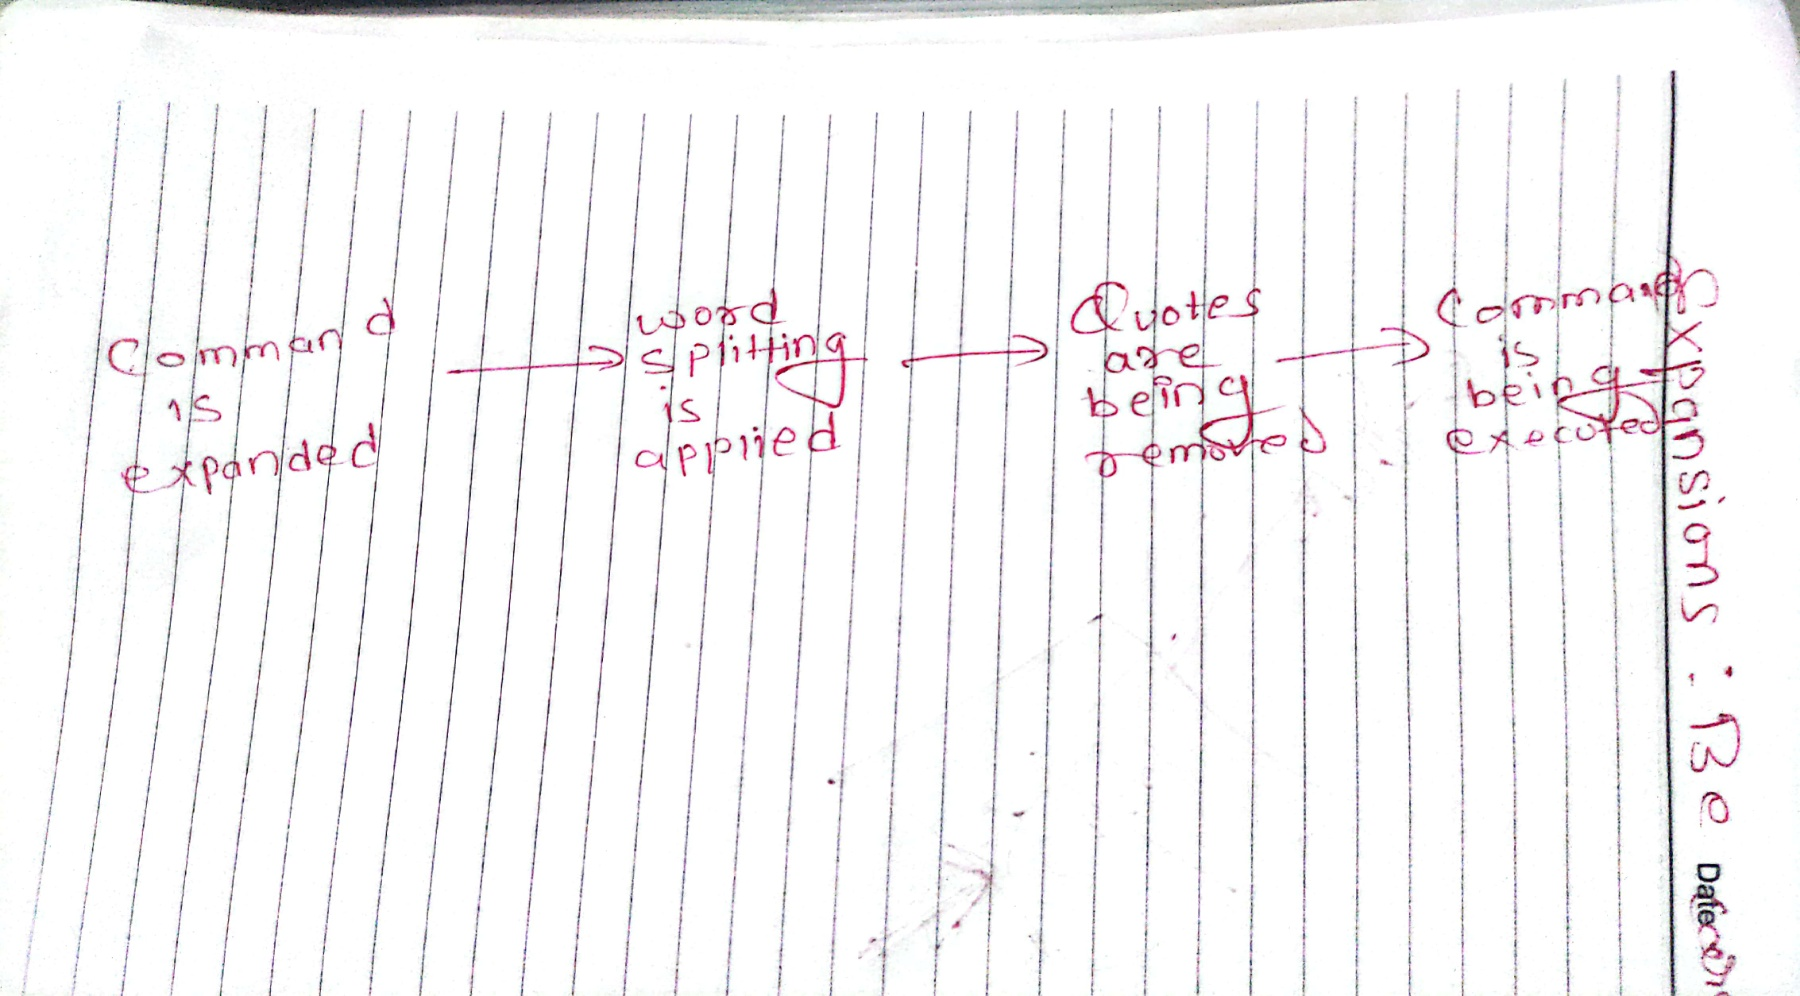 Command
is
expanded
word
splitting
is
applied
Quotes
are
being
removed
Command
is
being
executed
Expansions : Be
Date